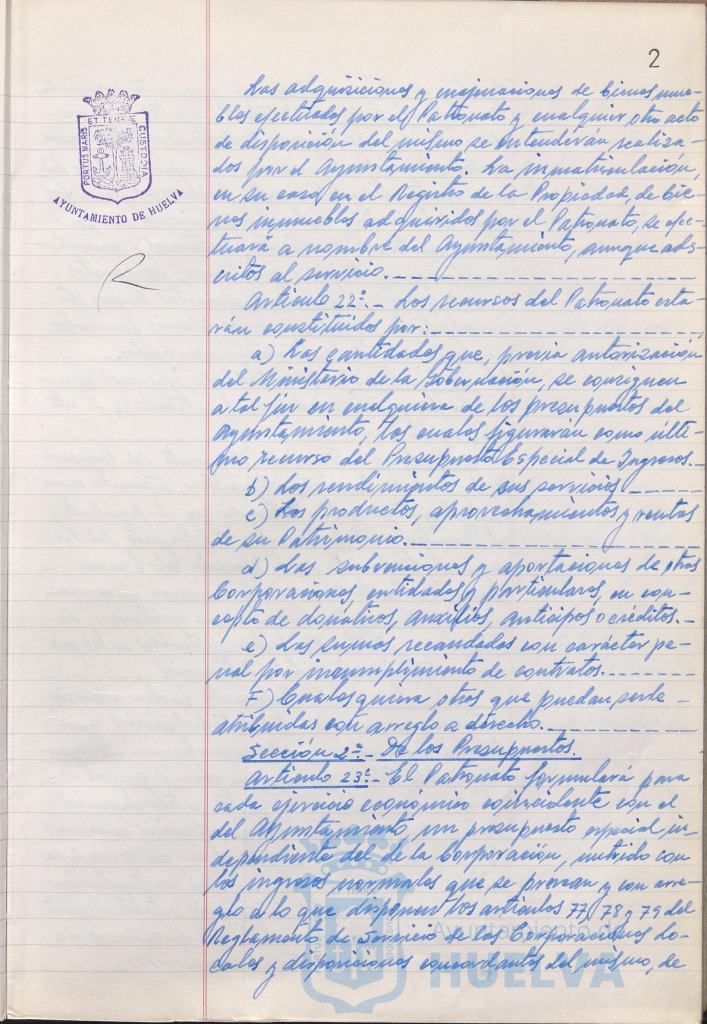 2
Las adquisiciones y enajenaciones de bienes mue-
bles efectuados por el Patronato y cualquier otro acto
de disposición del mismo se entenderán realiza-
dos por el Ayuntamiento. La inmatriculación,
en su caso, en el Registro de la Propiedad, de bie-
nes inmuebles adquiridos por el Patronato, se efec-
tuará a nombre del Ayuntamiento, aunque ads-
critos al servicio.
Artículo 22º.- Los recursos del Patronato esta-
rán constituidos por:
a) Las cantidades que, previa autorización
del Ministerio de la Gobernación, se consignen
a tal fin en cualquiera de los presupuestos del
Ayuntamiento, los cuales figurarán como últi-
mo recurso del Presupuesto Especial de Ingresos.-
b) Los rendimientos de sus servicios
c) Los productos, aprovechamientos y rentas
de su Patrimonio.
d) Las subvenciones y aportaciones de otras
Corporaciones, entidades y particulares, en con-
cepto de donativos, auxilios, anticipos o créditos.-
e) Las sumas recaudadas con carácter pe-
nal por incumplimiento de contratos.
F) Cualesquiera otros que puedan serle
atribuidas con arreglo a derecho.
Sección 2ª.- De los Presupuestos.
Artículo 23º.- El Patronato formulará para
cada ejercicio económico coincidente con el
del Ayuntamiento, un presupuesto especial in-
dependiente del de la Corporación, nutrido con
los ingresos normales que se provean y con arre-
glo a lo que disponen los artículos 77, 78 y 79 del
Reglamento de Servicio de las Corporaciones Lo-
cales y disposiciones concordantes del mismo, de
PORTUS MARIS ET TERRAE CUSTODIA
AYUNTAMIENTO DE HUELVA
Ayuntamiento de
HUELVA